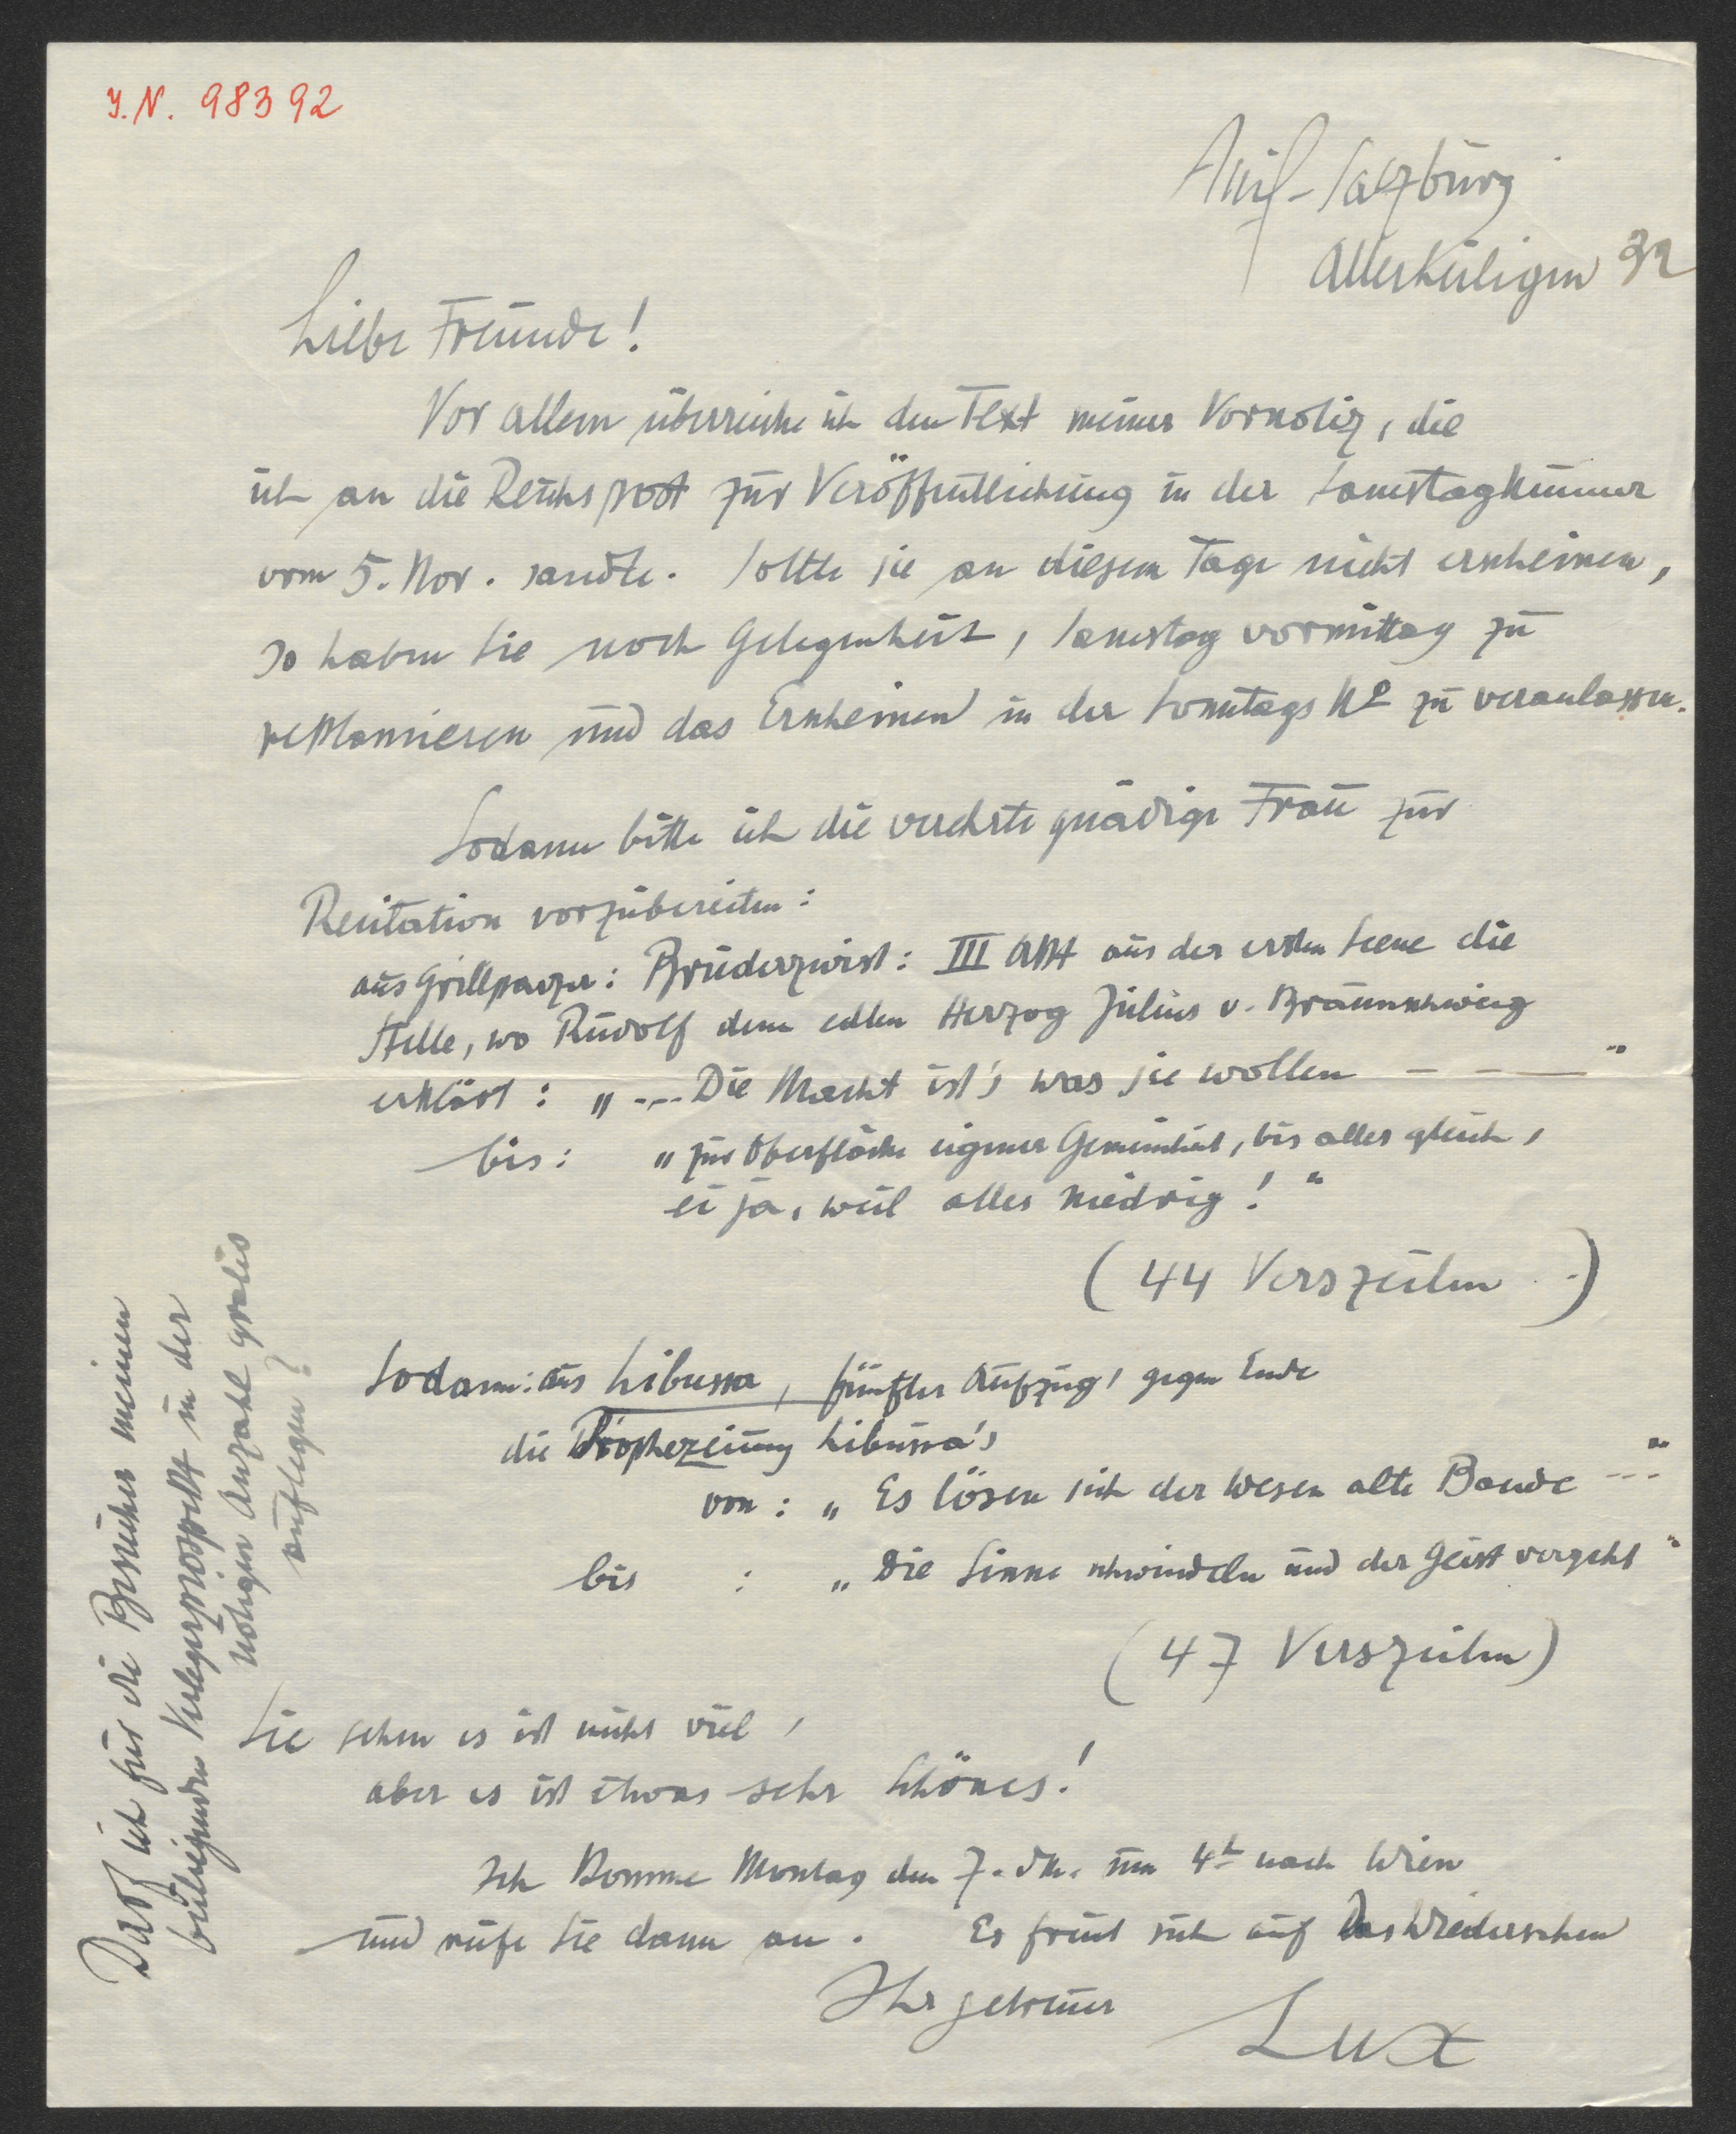 I.N. 98392
Anif-Salzburg
Allerheiligen 32
Liebe Freunde!
Vor allem überreiche ich den Text meiner Vornotiz, die
ich an die Reichspost zur Veröffentlichung in der Samstagnummer
vom 5. Nov. sandte. Sollte sie an diesem Tage nicht erscheinen,
so haben Sie noch Gelegenheit, Samstag vormittag zu
reklamieren und das Erscheinen in der Sonntags No zu veranlassen.
Sodann bitte ich die verehrte gnädige Frau zur
Recitation vorzubereiten:
aus Grillparzer: Bruderzwist: III Akt aus der ersten Scene die
Stelle, wo Rudolf dem edlen Herzog Julius v. Braunschweig
erklärt: „ --- Die Macht ist's was sie wollen — — —"
bis: „zur Oberfläche eigner Gemeinheit, bis alles gleich,
ei ja, weil alles niedrig!"
(44 Verszeilen.)
Sodann: aus Libussa, fünfter Aufzug, gegen Ende
die Prophezeiung Libussa's
von: „Es lösen sich der Wesen alte Bande ---"
bis : „Die Sinne schwindeln und der Geist vergeht"
(47 Verszeilen)
Sie sehen es ist nicht viel,
aber es ist etwas sehr Schönes!
Ich komme Montag den 7. dM. um 4h nach Wien
und rufe Sie dann an. Es freut sich auf das Wiedersehen
Ihr getreuer
Lux
Darf ich für die Besucher meinen
beiliegenden Verlegerprospekt in der
nötigen Anzahl gratis
auflegen?